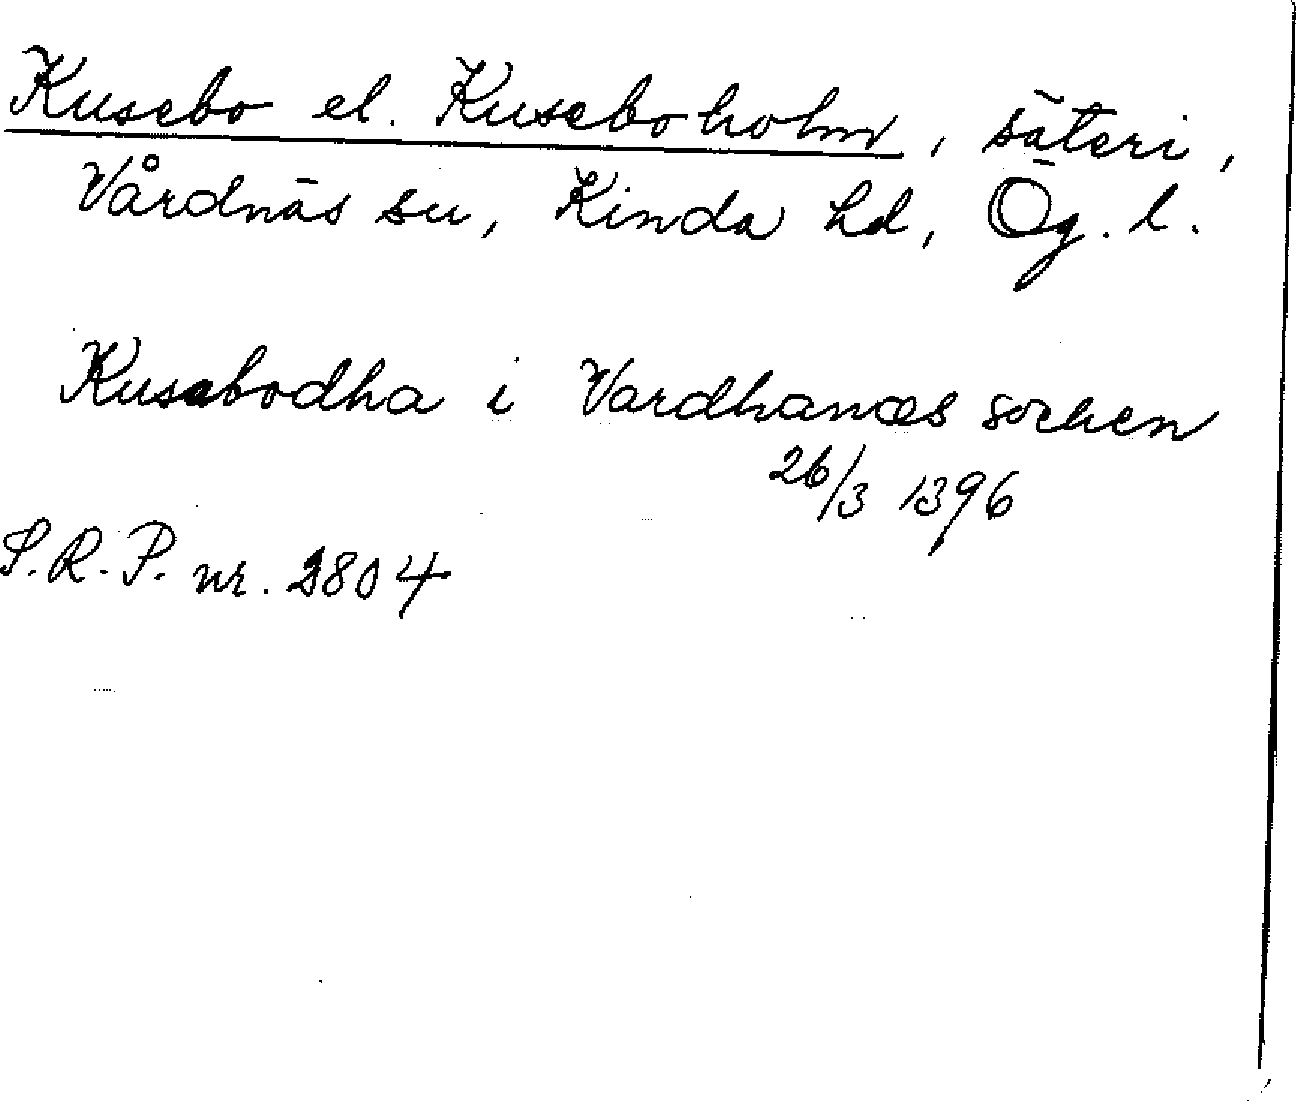 Kusebo el. Kuseboholm, säteri,
Vårdnäs sn, Kinda hd, Ög. l.
Kusabodha i Vardhanæs sochen
26/3 1396
S.R.P. nr. 2804